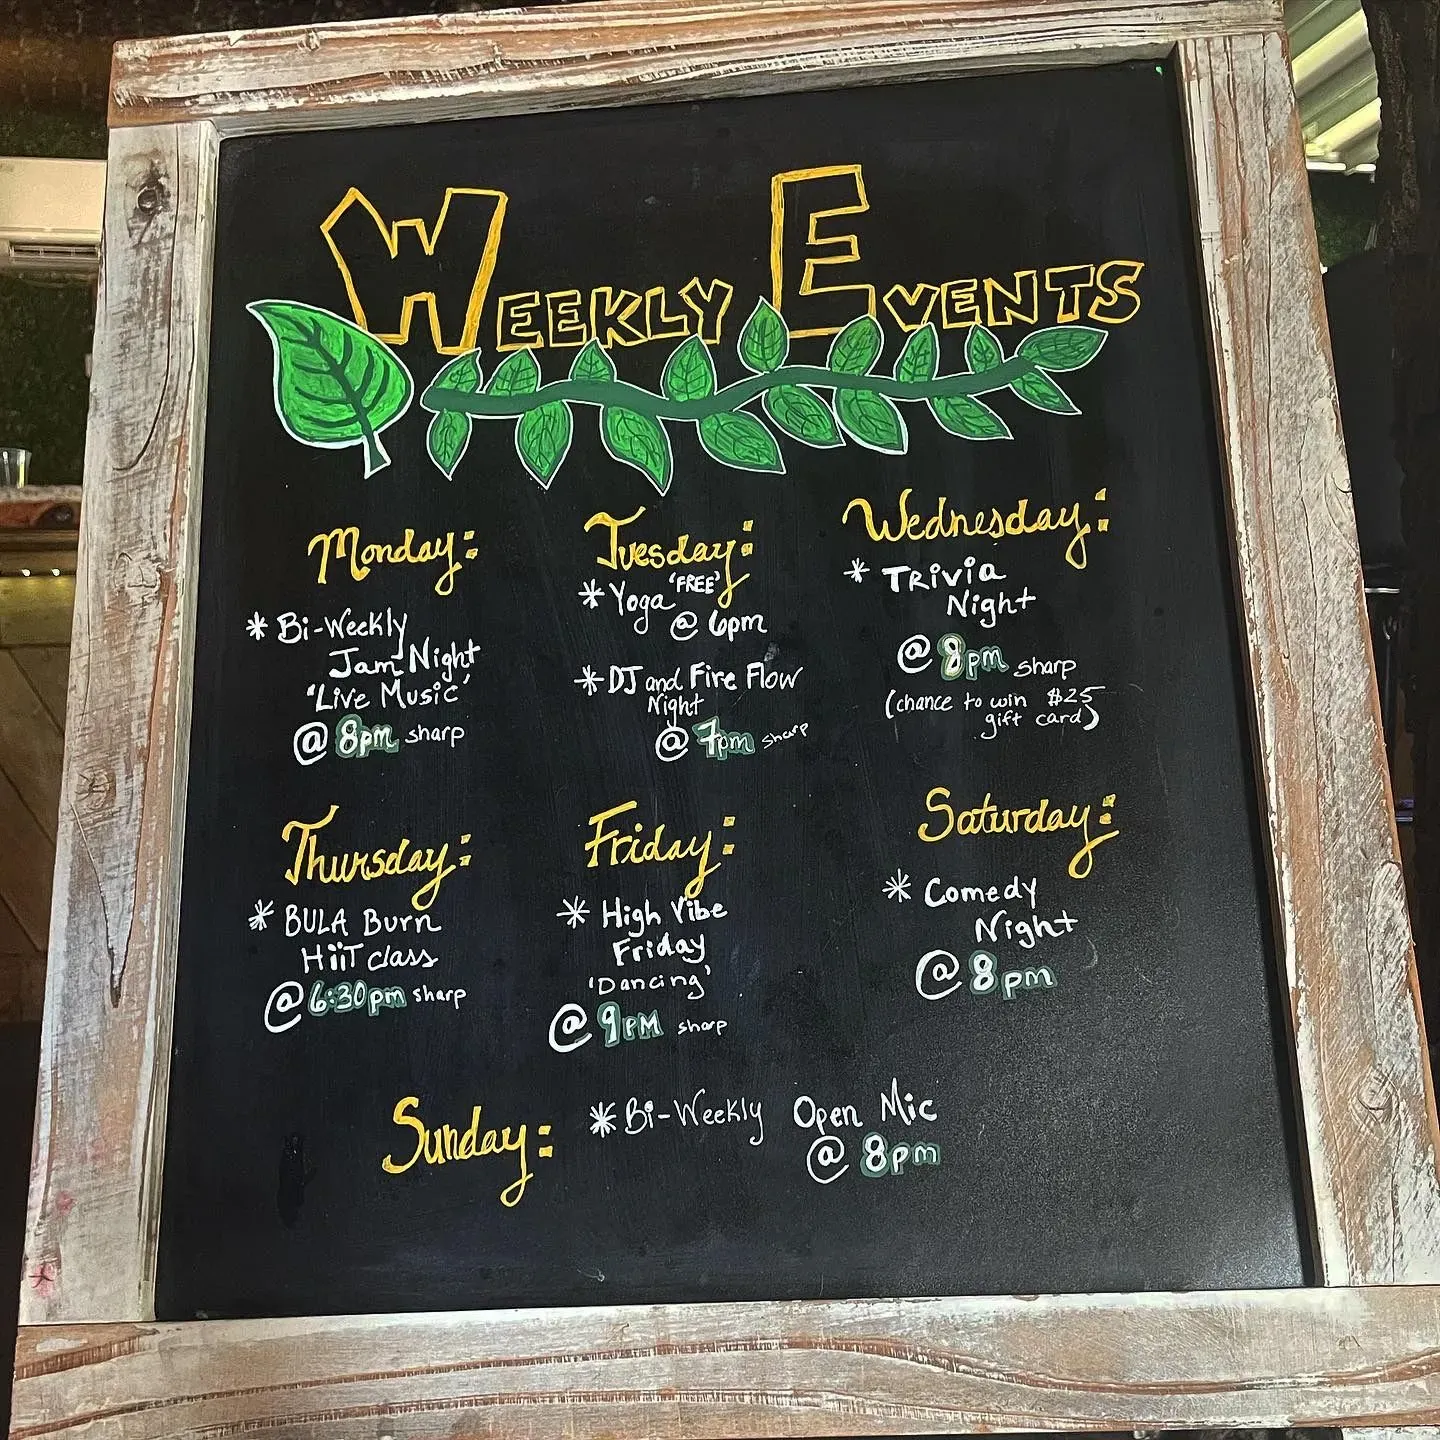 WEEKLY EVENTS
Monday:
* Bi-Weekly
Jam Night
'Live Music'
@ 8pm sharp
Tuesday:
* Yoga 'FREE'
@ 6pm
* DJ and Fire Flow
Night
@ 7pm sharp
Wednesday:
* TRiviA
Night
@ 8pm sharp
(chance to win $25
gift card)
Thursday:
* BULA Burn
HiiT class
@ 6:30pm sharp
Friday:
* High Vibe
Friday
'Dancing'
@ 9PM sharp
Saturday:
* Comedy
Night
@ 8pm
Sunday: * Bi-Weekly Open Mic
@ 8pm